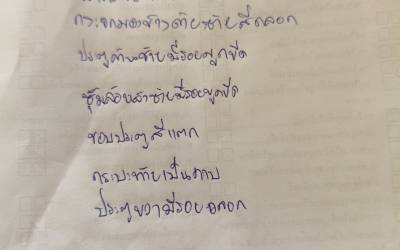 กระจกมองข้างด้านซ้ายสีถลอก
ประตูด้านซ้ายมีรอยขูดขีด
ซุ้มล้อหลังซ้ายมีรอยขูดขีด
ขอบประตูสีแตก
กระบะท้ายเป็นคราบ
ประตูขวามีรอยถลอก